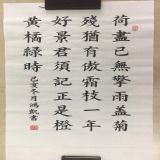 荷盡已無擎雨蓋菊
殘猶有傲霜枝一年
好景君須記正是橙
黃橘綠時
己亥冬月鴻凱書